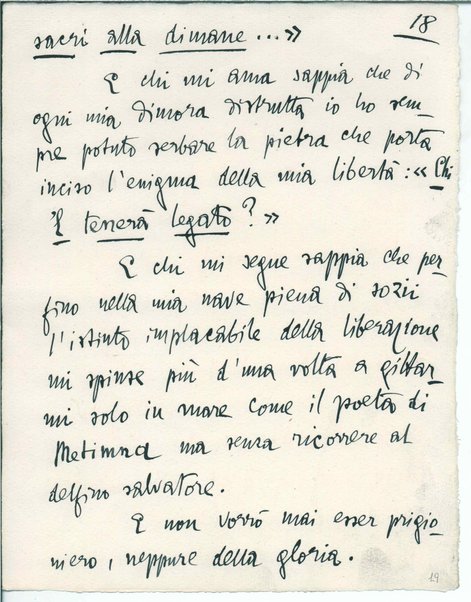 18
sacri alla dimane...»
E chi mi ama sappia che di
ogni mia dimora distrutta io ho sem-
pre potuto serbare la pietra che porta
inciso l'enigma della mia libertà: «Chi
'l tenerà legato?»
E chi mi segue sappia che per-
fino nella mia nave piena di sozii
l'istinto implacabile della liberazione
mi spinse più d'una volta a gittar-
mi solo in mare come il poeta di
Metimna ma senza ricorrere al
delfino salvatore.
E non vorrò mai esser prigio-
niero, neppure della gloria.
19